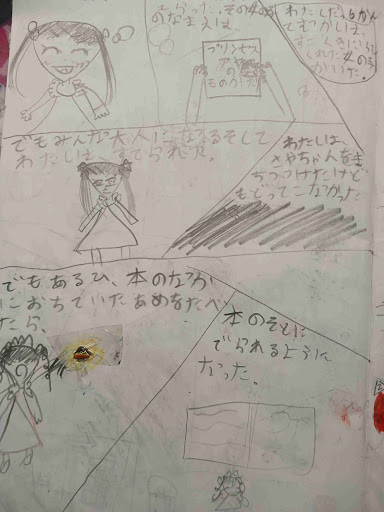 わたしだ
てもっかいは、
かいた。
もらった。その女の子
のなまえは、
プリンセス
アヤ
の
ものがたり
でもみんな大人になるそして
わたしは、すてられた。
わたしは、
さやちゃんをま
ちつづけたけど
もどってこなかった
でもあるひ、本のなか
におちていたあめをたべ
たら、
本のそとに
でられるように
なった。